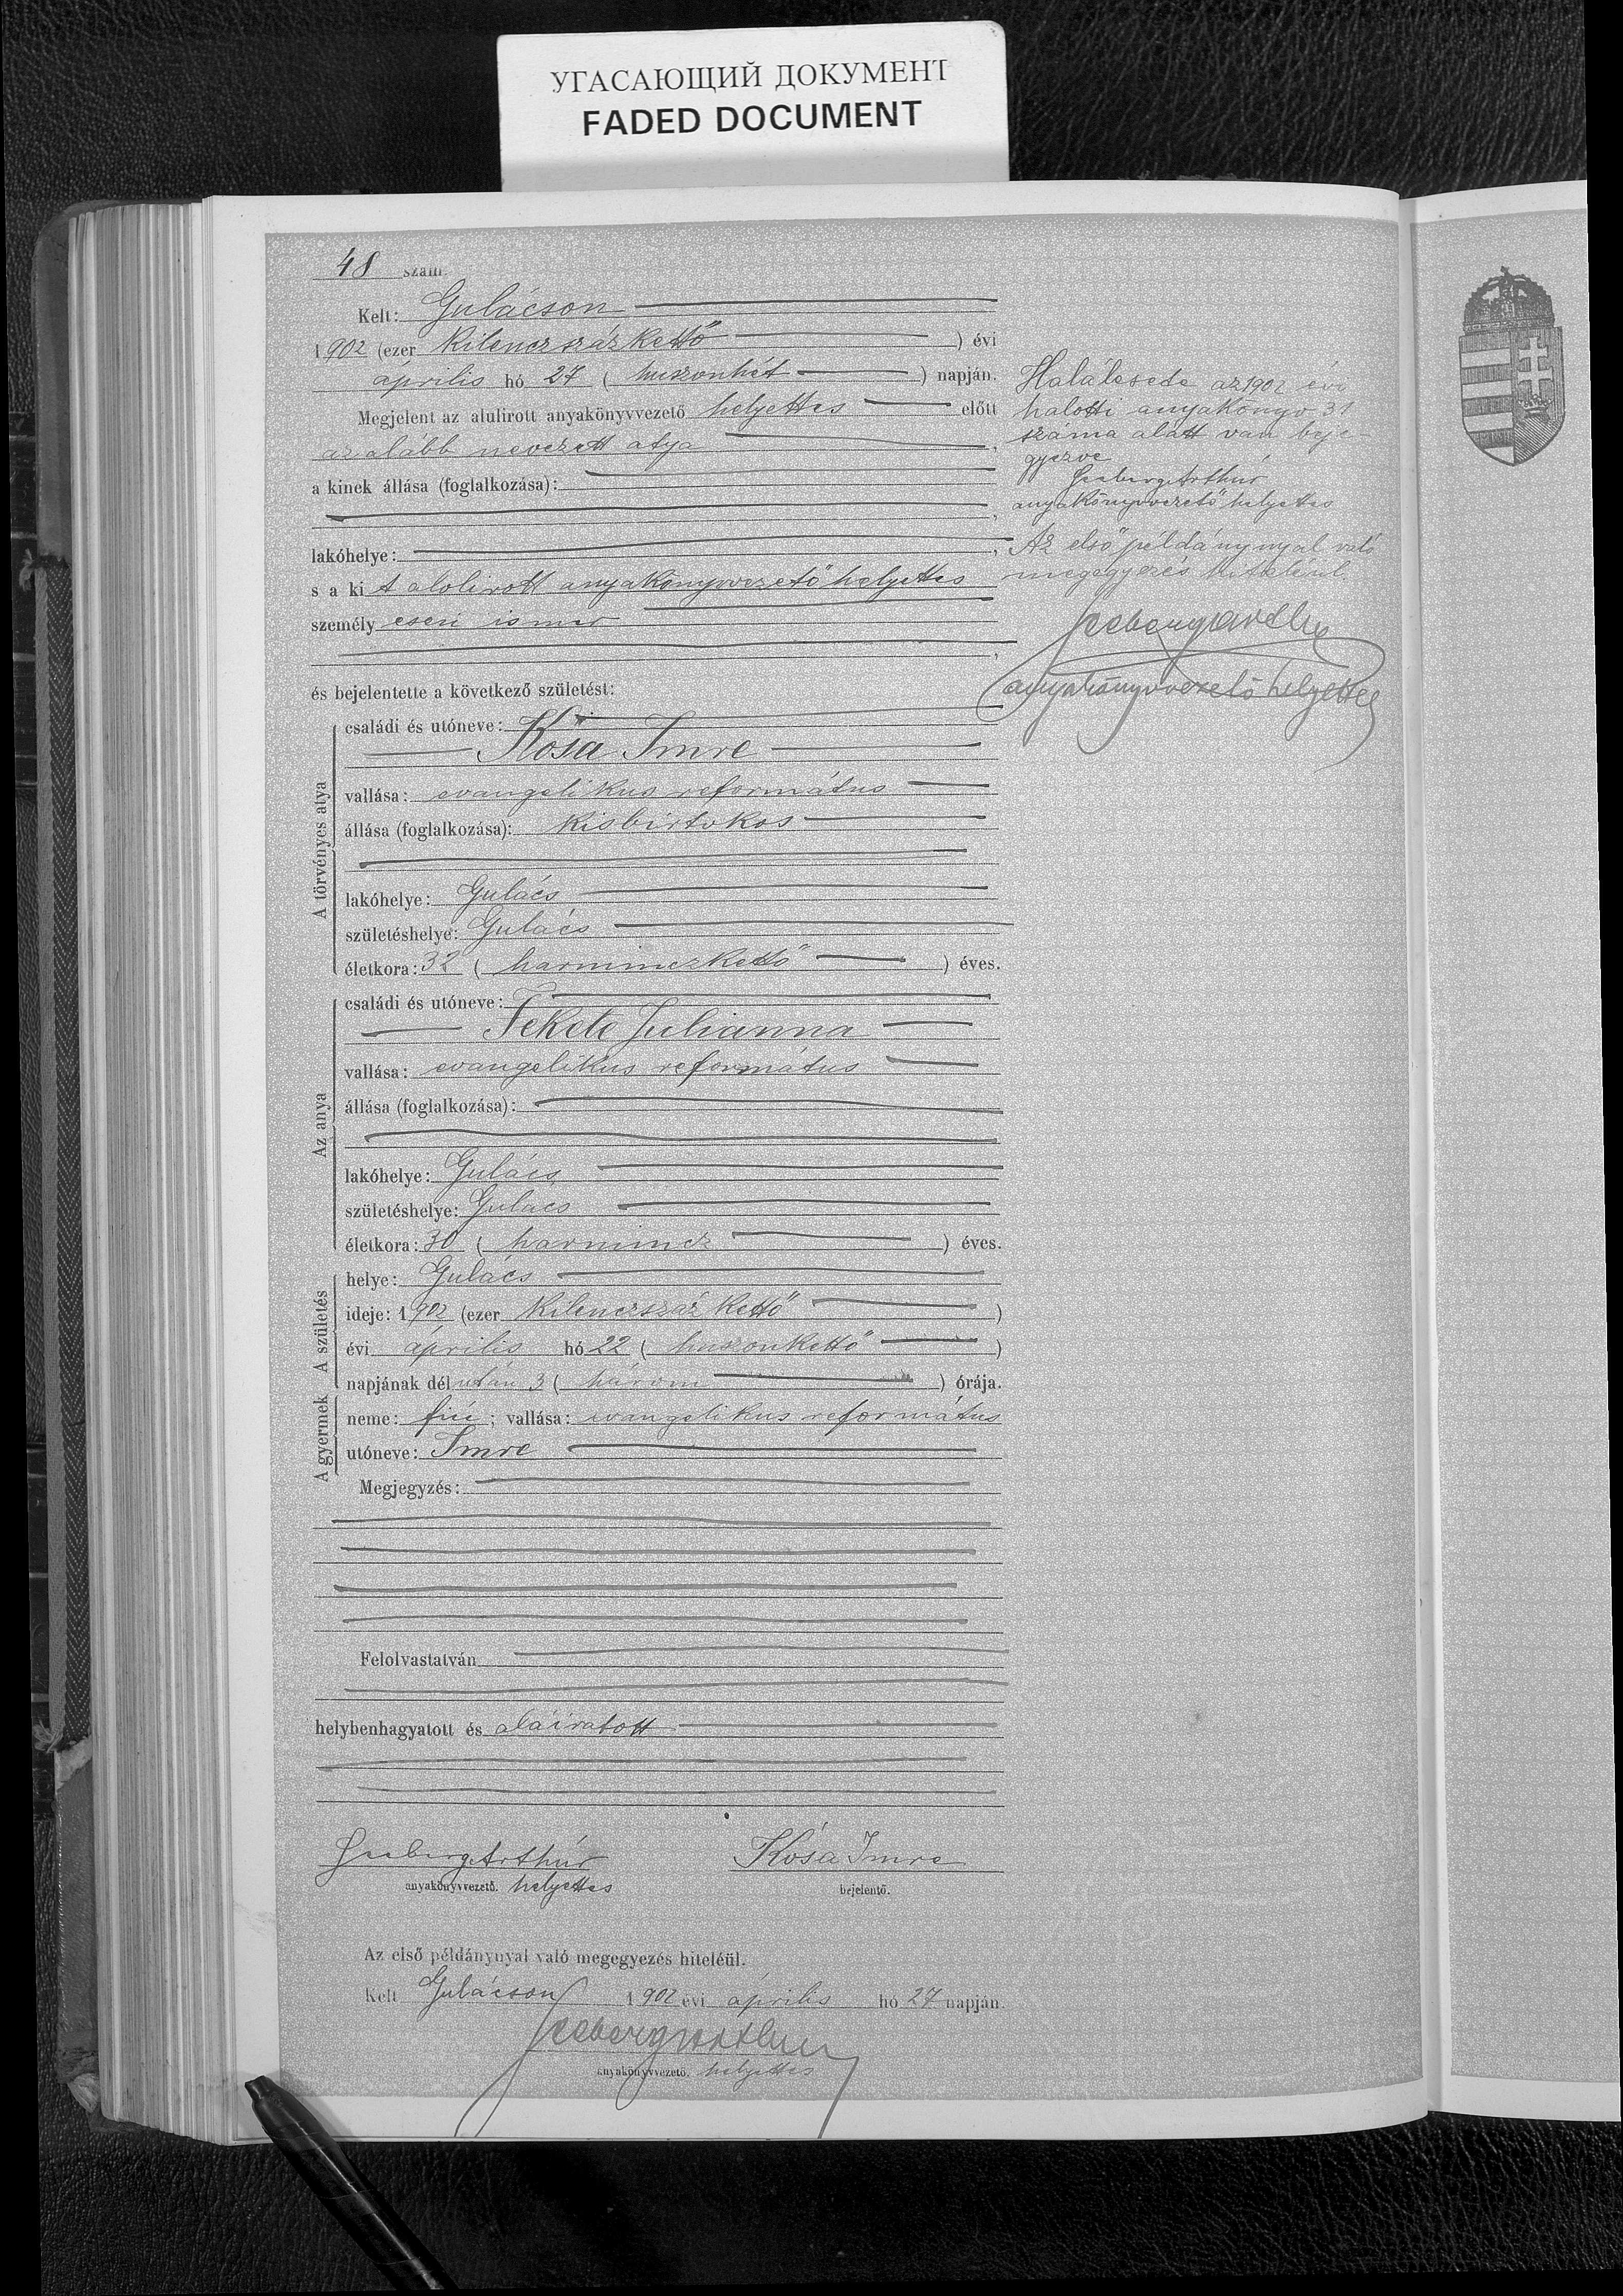 УГАСАЮЩИЙ ДОКУМЕНТ
FADED DOCUMENT
48 szám
Kelt: Gulácson
1902 (ezer kilenczszázkettő) évi
április hó 27 (huszonhét) napján.
Megjelent az alulirott anyakönyvvezető helyettes előtt
az alább nevezett atya,
a kinek állása (foglalkozása):
,
lakóhelye: ,
s a kit alolirott anyakönyvvezető helyettes
személyesen ismer
,
és bejelentette a következő születést:
A törvényes atya
családi és utóneve:
Kósa Imre
vallása: evangelikus református
állása (foglalkozása): kisbirtokos
lakóhelye: Gulács
születéshelye: Gulács
életkora: 32 (harminczkettő) éves.
Az anya
családi és utóneve:
Fekete Julianna
vallása: evangelikus református
állása (foglalkozása):
lakóhelye: Gulács
születéshelye: Gulács
életkora: 30 (harmincz) éves.
A születés
helye: Gulács
ideje: 1902 (ezer kilenczszáz kettő)
évi április hó 22 (huszonkettő)
napjának délután 3 (három) órája.
A gyermek
neme: fiú; vallása: evangelikus református
utóneve: Imre
Megjegyzés:
Felolvastatván
helybenhagyatott és aláiratott
Seeberg Arthúr
anyakönyvvezető. helyettes
Kósa Imre
bejelentő.
Az első példánynyal való megegyezés hiteléül.
Kelt Gulácson 1902 évi április hó 27 napján.
anyakönyvvezető. helyettes
Halálesete az 1902 évi
halotti anyakönyv 31
száma alatt van beje
gyezve
Seeberg Arthúr
anyakönyvvezető helyettes
Az első példánynyal való
megegyezés hiteléül
anyakönyvvezető helyettes